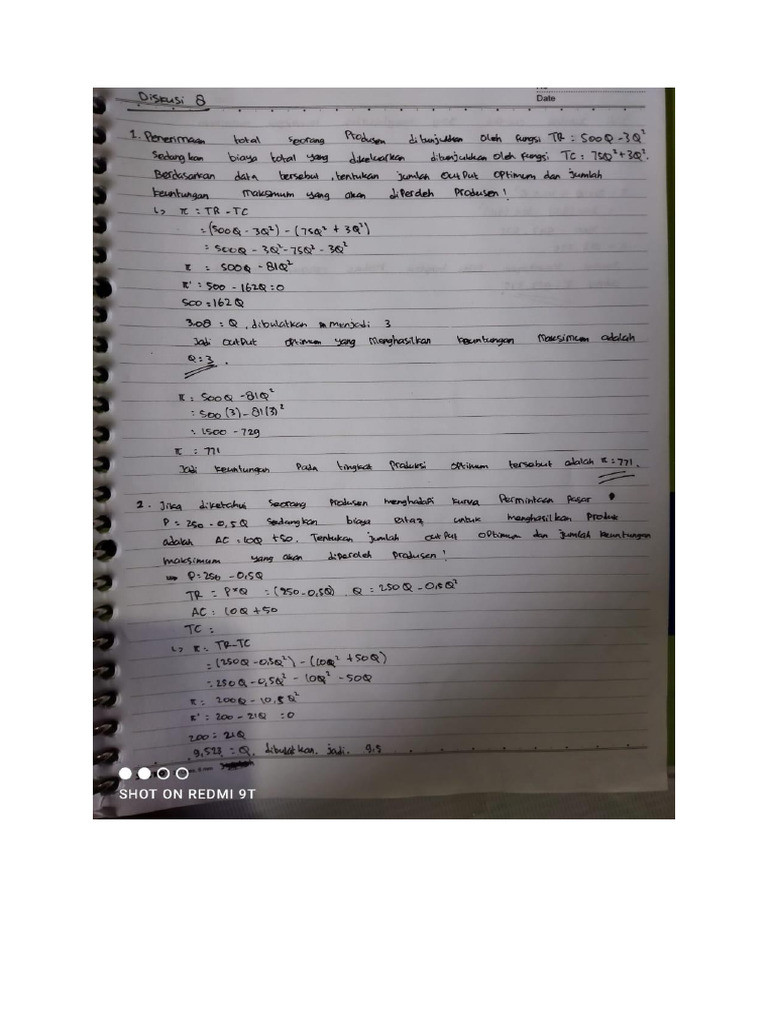 Date
Diskusi 8
1. Penerimaan total seorang Produsen ditunjukkan oleh fungsi TR = 500Q - 3Q²
Sedangkan biaya total yang dikeluarkan ditunjukkan oleh fungsi TC = 75Q² + 3Q².
Berdasarkan data tersebut, tentukan jumlah output optimum dan jumlah
keuntungan maksimum yang akan diperoleh Produsen!
↳ π = TR - TC
= (500Q - 3Q²) - (75Q² + 3Q²)
= 500Q - 3Q² - 75Q² - 3Q²
π = 500Q - 81Q²
π' = 500 - 162Q = 0
500 = 162Q
3.08 = Q, dibulatkan menjadi 3
Jadi output optimum yang menghasilkan keuntungan maksimum adalah
Q = 3.
π = 500Q - 81Q²
= 500(3) - 81(3)²
= 1500 - 729
π = 771
Jadi keuntungan pada tingkat produksi optimum tersebut adalah π = 771.
2. Jika diketahui seorang Produsen menghadapi kurva Permintaan Pasar
P = 250 - 0,5Q sedangkan biaya rata2 untuk menghasilkan Produk
adalah AC = 10Q + 50. Tentukan jumlah output optimum dan jumlah keuntungan
maksimum yang akan diperoleh produsen!
P = 250 - 0,5Q
TR = P×Q = (250 - 0,5Q). Q = 250Q - 0,5Q²
AC = 10Q + 50
TC =
↳ π = TR - TC
= (250Q - 0,5Q²) - (10Q² + 50Q)
= 250Q - 0,5Q² - 10Q² - 50Q
π = 200Q - 10,5Q²
π' = 200 - 21Q = 0
200 = 21Q
9,523 = Q, dibulatkan jadi 9,5
SHOT ON REDMI 9T